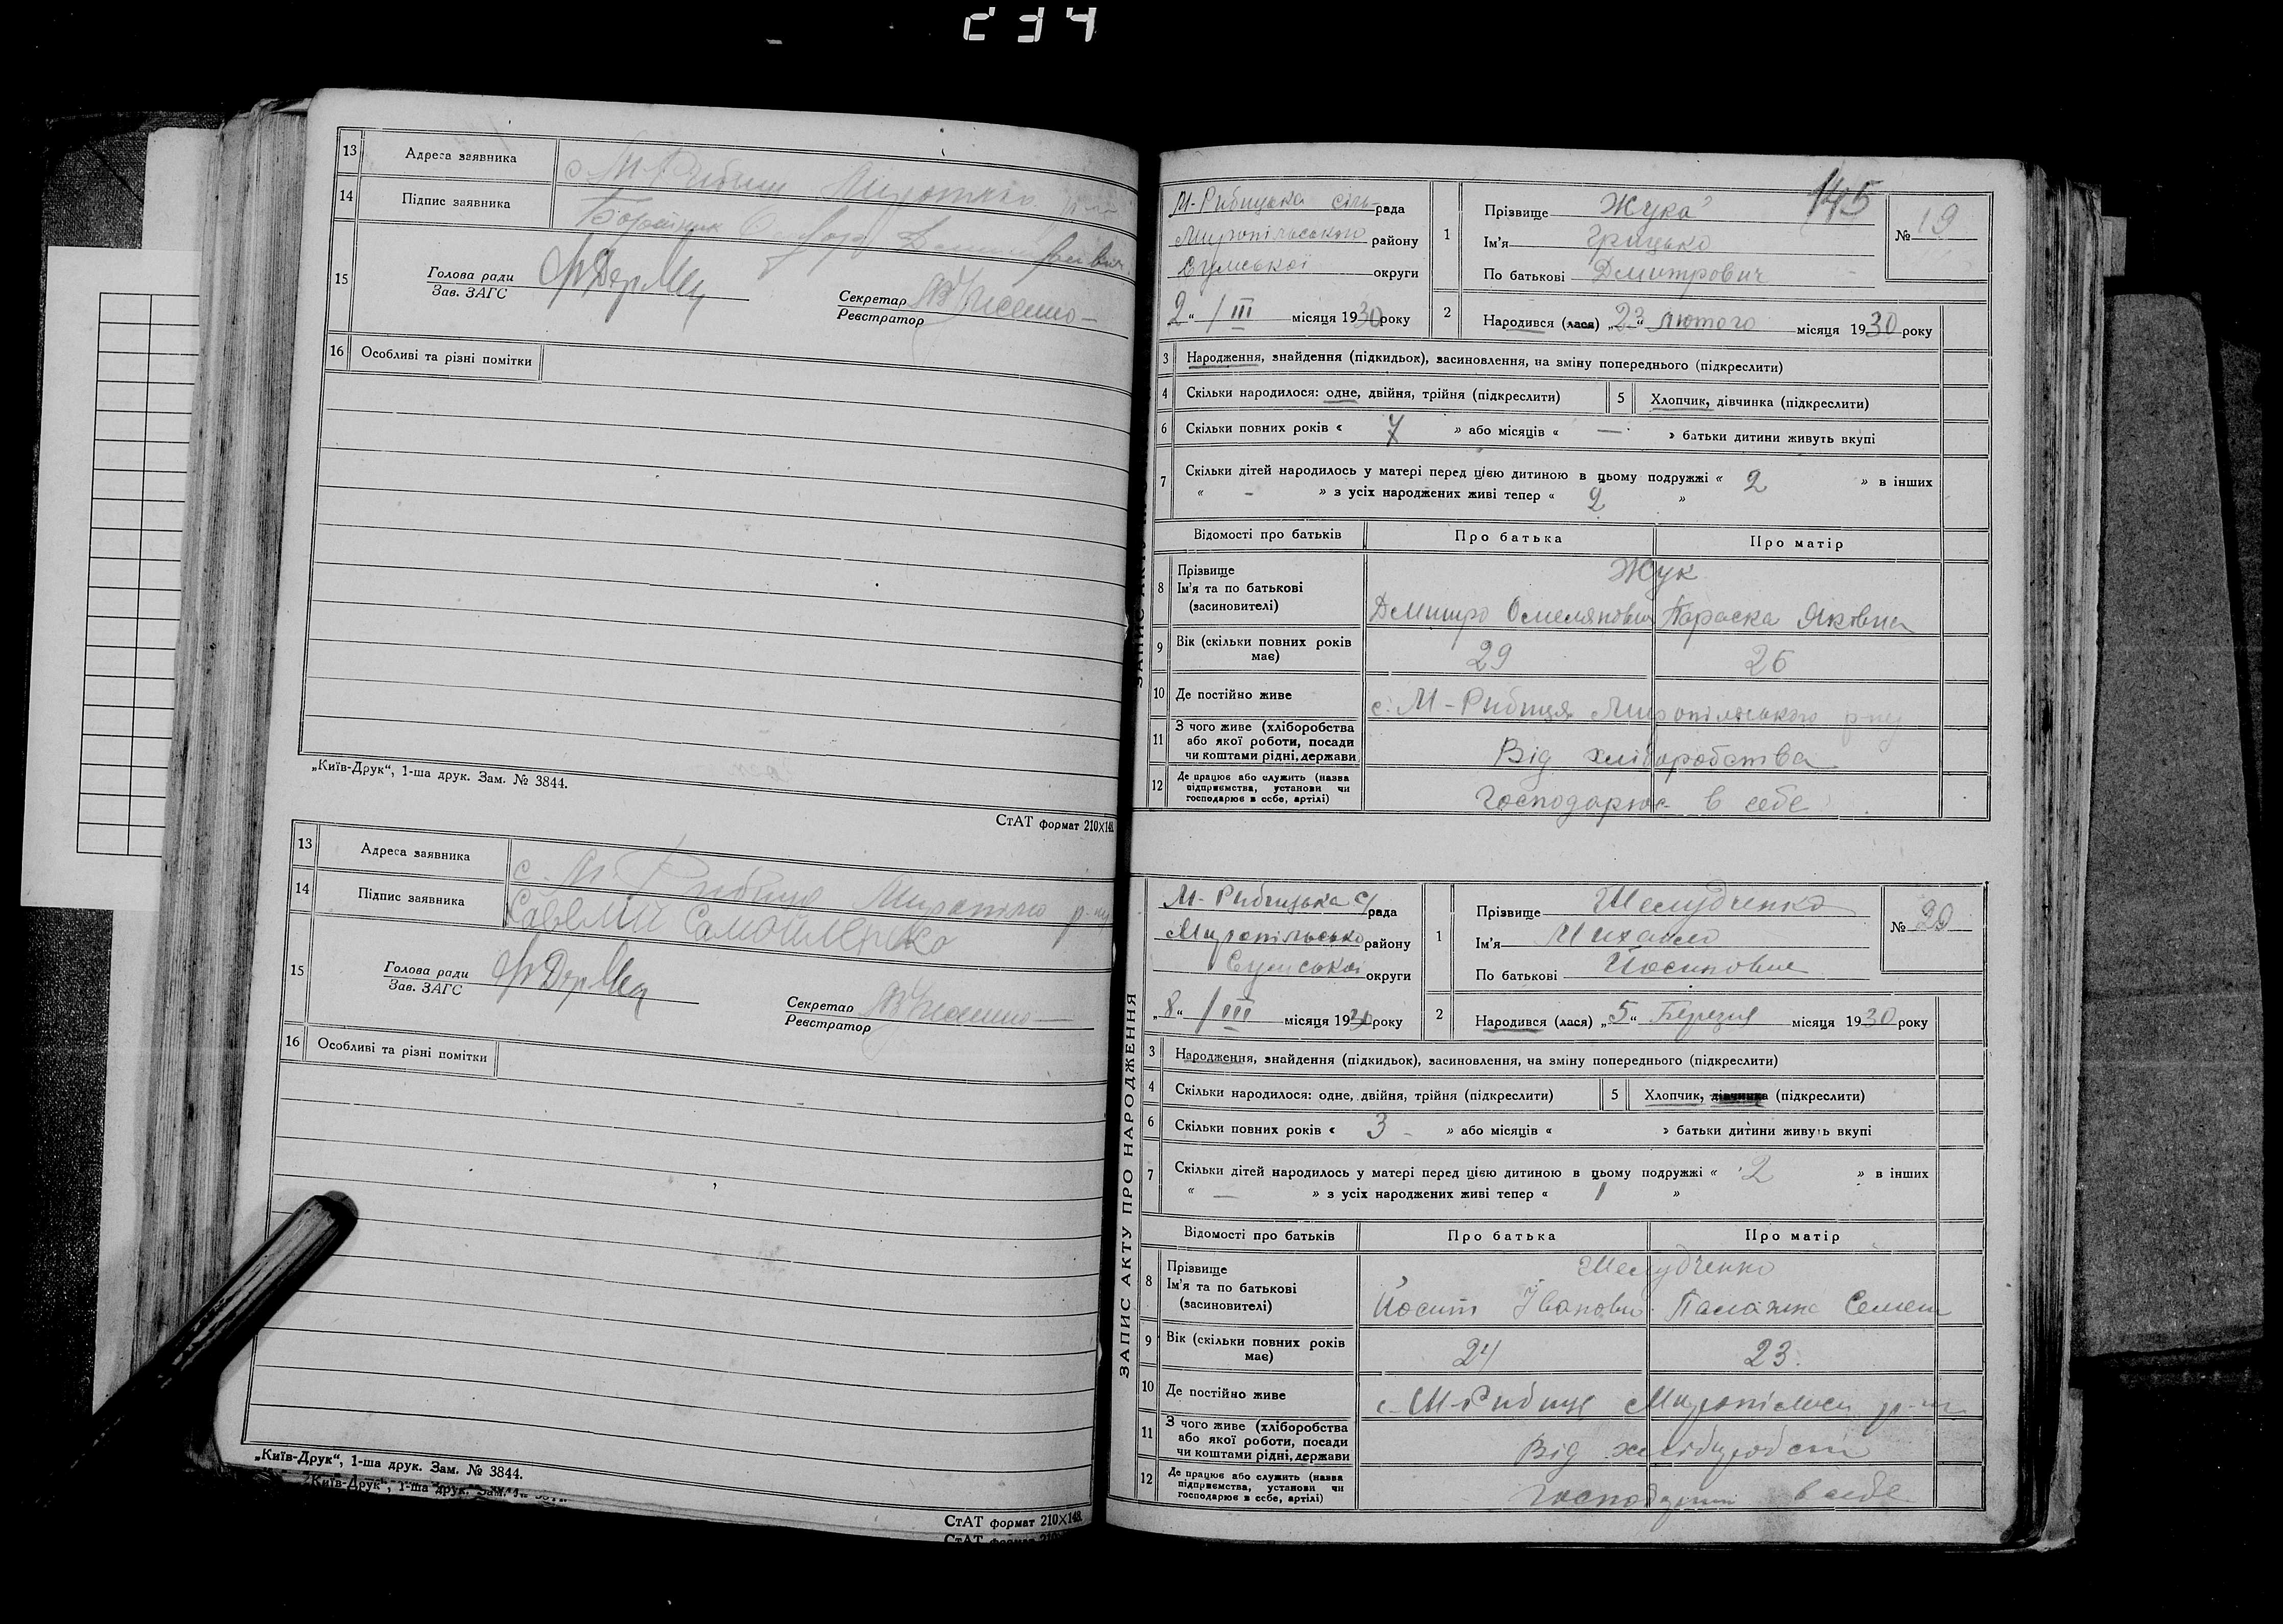 234
13 Адреса заявника с. М-Рибиця
14 Підпис заявника
15 Голова ради
Зав. ЗАГС
Секретар
Реєстратор
16 Особливі та різні помітки
„Київ-Друк“, 1-ша друк. Зам. № 3844.
СтАТ формат 210×148.
13 Адреса заявника с. М-Рибиця р-ну
14 Підпис заявника
15 Голова ради
Зав. ЗАГС
Секретар
Реєстратор
16 Особливі та різні помітки
„Київ-Друк“, 1-ша друк. Зам. № 3844.
„Київ-Друк“, 1-ша друк. Зам.
СтАТ формат 210×148.
СтАТ формат 210
145
М-Рибицька сіль-рада
Миропільського району
Сумської округи
2 “ / III місяця 1930 року
1 Прізвище Жука
Ім'я Грицько
По батькові Дмитрович
№ 19
2 Народився (лася) „23“ лютого місяця 1930 року
3 Народження, знайдення (підкидьок), засиновлення, на зміну попереднього (підкреслити)
4 Скільки народилося: одне, двійня, трійня (підкреслити) 5 Хлопчик, дівчинка (підкреслити)
6 Скільки повних років « 7 » або місяців « — » батьки дитини живуть вкупі
7 Скільки дітей народилось у матері перед цією дитиною в цьому подружжі « 2 » в інших
« - » з усіх народжених живі тепер « 2 »
Відомості про батьків Про батька Про матір
8 Прізвище Жук
Ім'я та по батькові
(засиновителі) Дмитро Омелянович Параска Яківна
9 Вік (скільки повних років має) 29 26
10 Де постійно живе с. М-Рибиця Миропільського р-ну
11 З чого живе (хліборобства
або якої роботи, посади
чи коштами рідні, держави Від хліборобства
12 Де працює або служить (назва
підприємства, установи чи
господарює в себе, артілі) Господарює в себе
ЗАПИС АКТУ ПРО НАРОДЖЕННЯ
М-Рибицька с/рада
Миропільсько району
Сумської округи
„8“ / III місяця 19 року
1 Прізвище
Ім'я Михайло
По батькові Йосипович
№ 20
2 Народився (лася) „5“ Березня місяця 1930 року
3 Народження, знайдення (підкидьок), засиновлення, на зміну попереднього (підкреслити)
4 Скільки народилося: одне, двійня, трійня (підкреслити) 5 Хлопчик, дівчинка (підкреслити)
6 Скільки повних років « 3 - » або місяців « » батьки дитини живуть вкупі
7 Скільки дітей народилось у матері перед цією дитиною в цьому подружжі « 2 » в інших
« — » з усіх народжених живі тепер « 1 »
Відомості про батьків Про батька Про матір
8 Прізвище
Ім'я та по батькові
(засиновителі) Йосип Іванови Семен
9 Вік (скільки повних років має) 24 23
10 Де постійно живе с. М-Рибиця
11 З чого живе (хліборобства
або якої роботи, посади
чи коштами рідні, держави Від
12 Де працює або служить (назва
підприємства, установи чи
господарює в себе, артілі) в себе